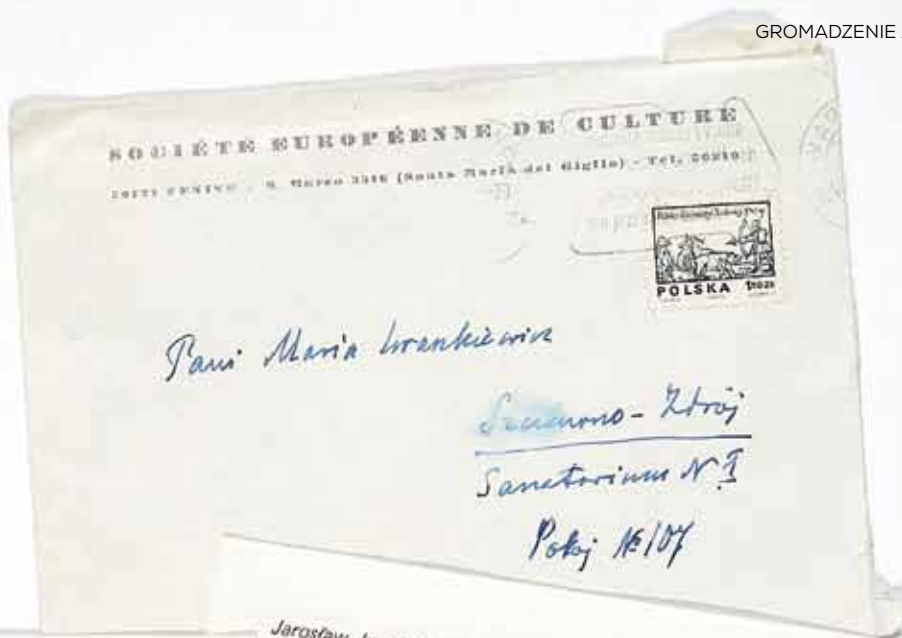 GROMADZENIE
SOCIÉTÉ EUROPÉENNE DE CULTURE
(Santa Maria del Giglio) - Tel.
POLSKA
Pani Maria Iwankiewicz
Szczawno-Zdrój
Sanatorium N I
Pokój № 107
Jarosław